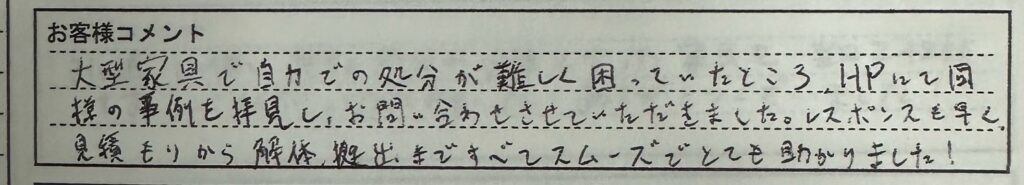 お客様コメント
大型家具で自力での処分が難しく困っていたところ、HPにて同
様の事例を拝見し、お問い合わせさせていただきました。レスポンスも早く、
見積もりから解体、搬出まですべてスムーズでとても助かりました！